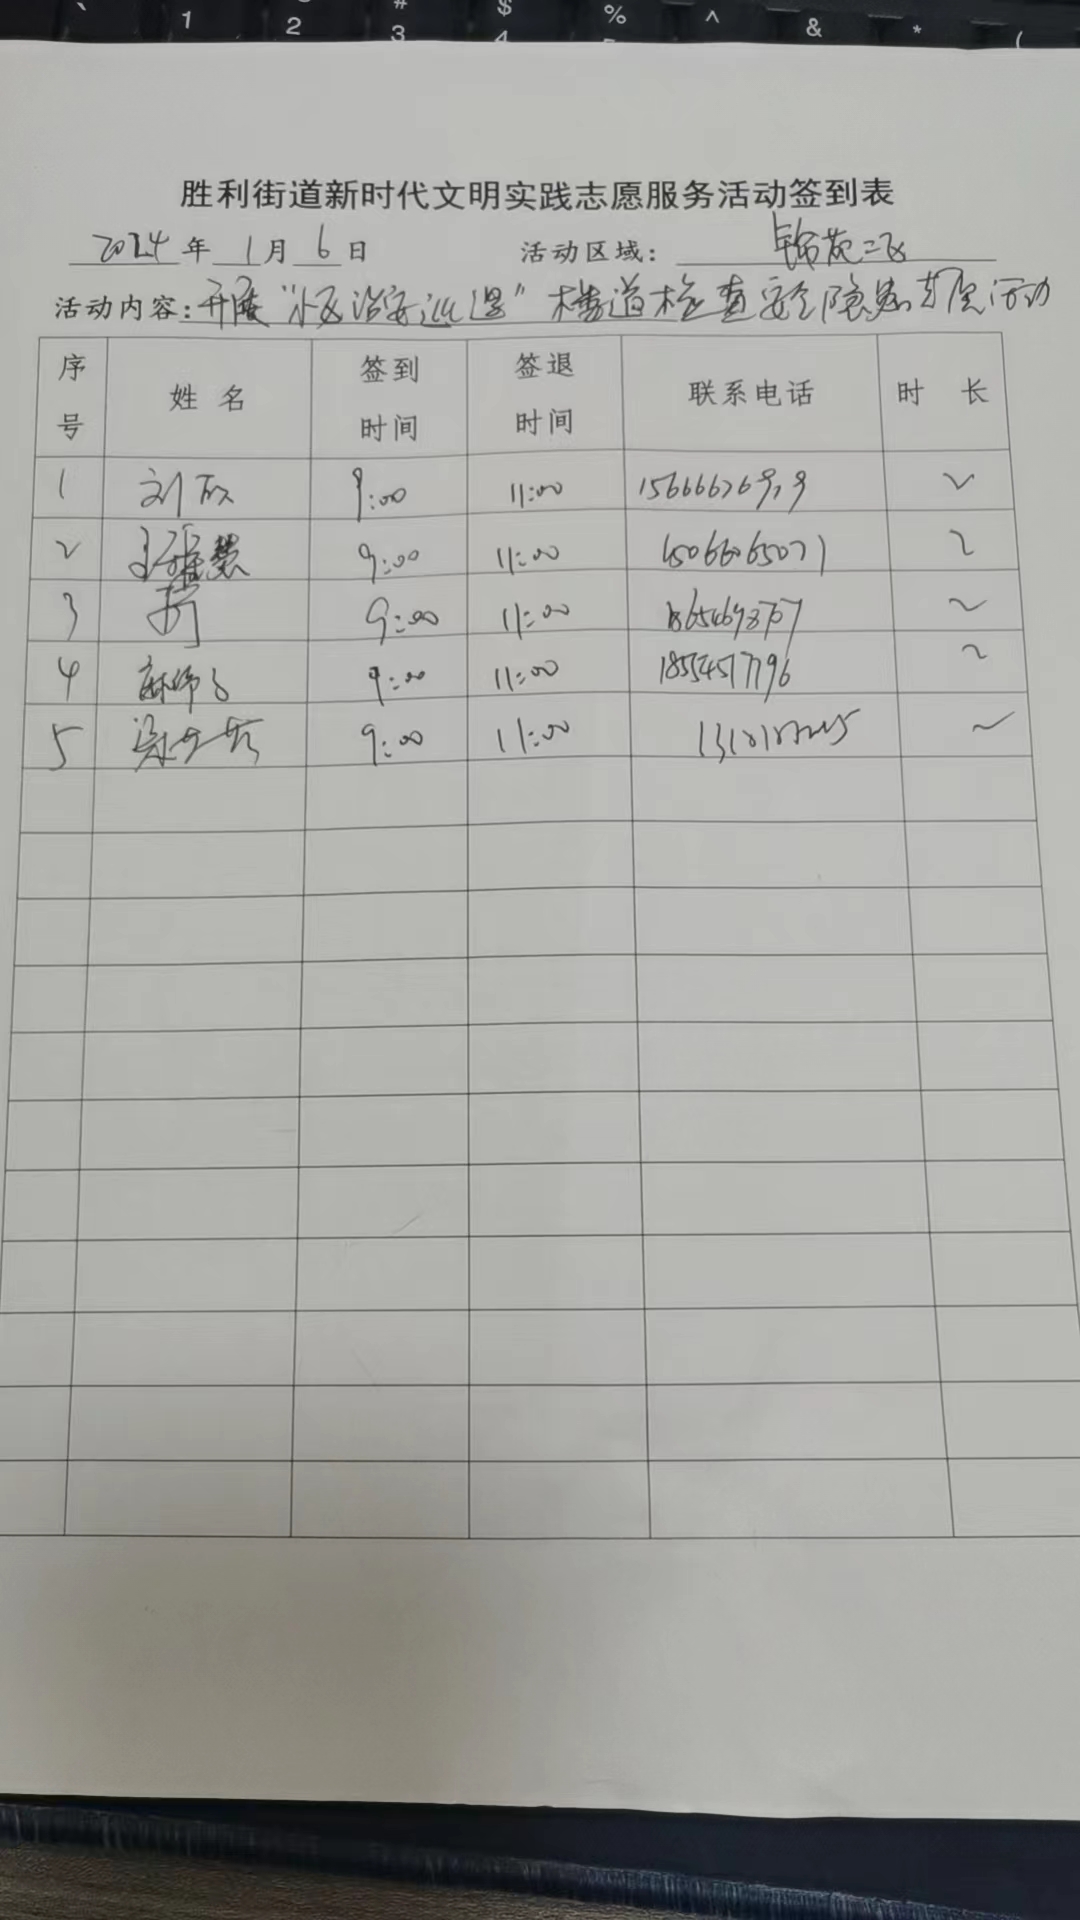 ` 1 2 # 3 $ 4 % ^ & * (
胜利街道新时代文明实践志愿服务活动签到表
2024年 1月 6日 活动区域: 锦苑二区
活动内容: 开展"小区治安巡逻"楼道检查安全隐患 活动
序号 姓名 签到时间 签退时间 联系电话 时长
1 刘 9:00 11:00 2
2 王雅慧 9:00 11:00 15066065071 2
3 9:00 11:00 2
4 9:00 11:00 18554517796 2
5 9:00 11:00 2